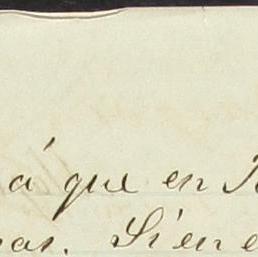 á que en
nas. Si en e